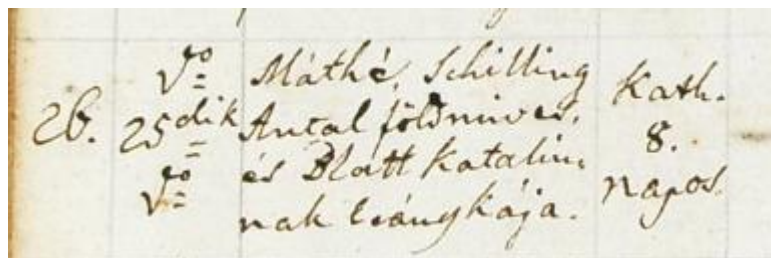 26.
Vo
25dik
Vo
Máthé, Schilling
Antal földmives,
és Blatt Katalin,
nak leánykája.
Kath.
8.
napos.